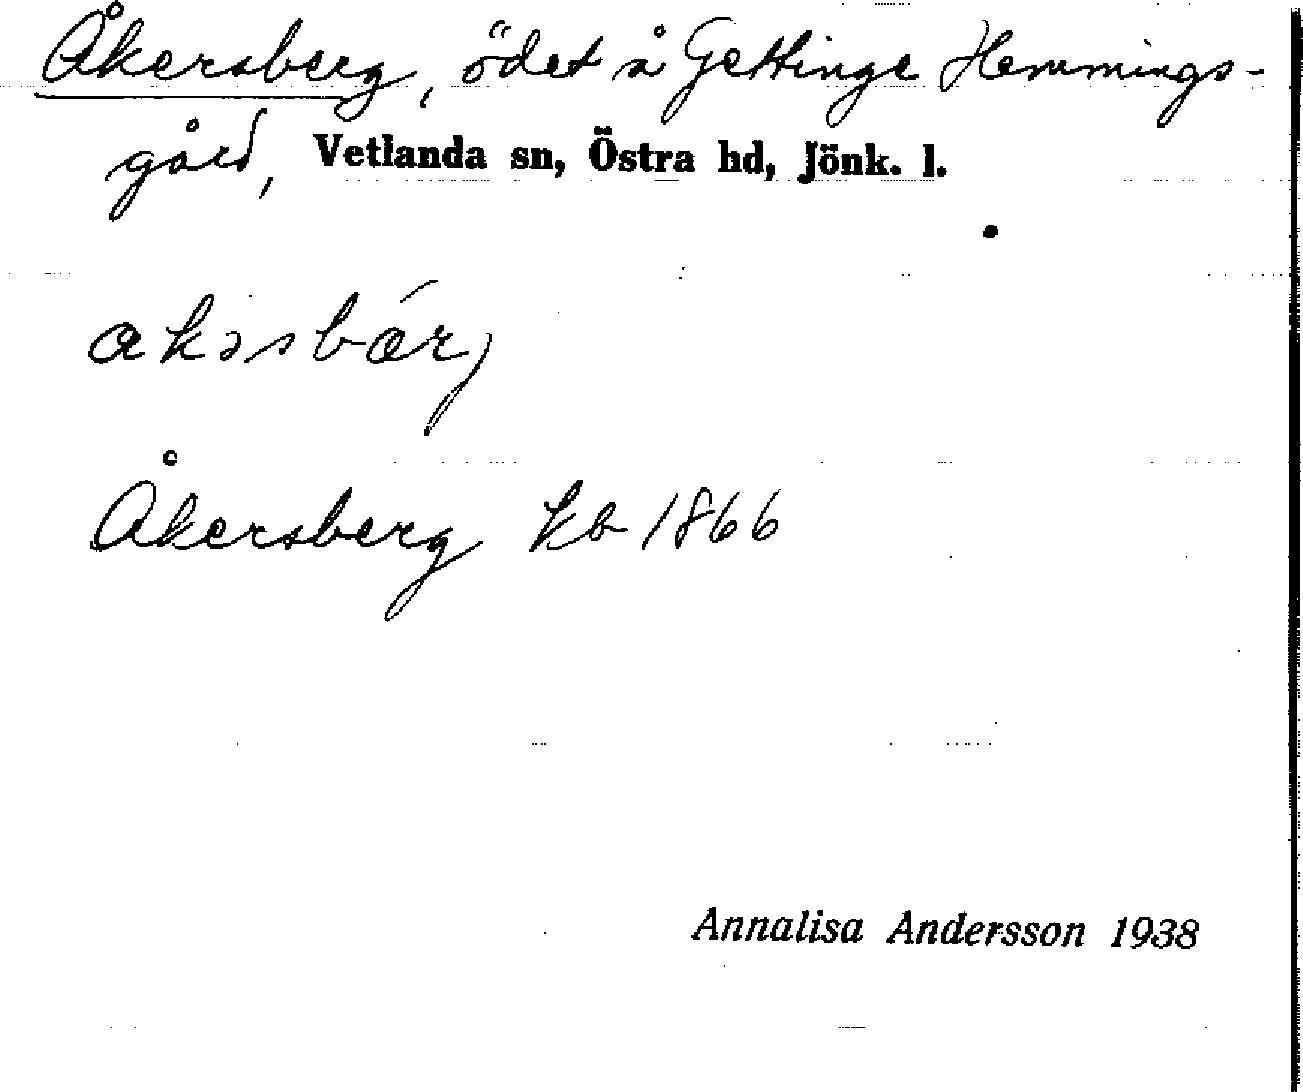 Åkersberg, ödet å Gettinge Hemmings-
gård, Vetlanda sn, Östra hd, Jönk. l.
akəsbár,
Åkersberg kb 1866
Annalisa Andersson 1938